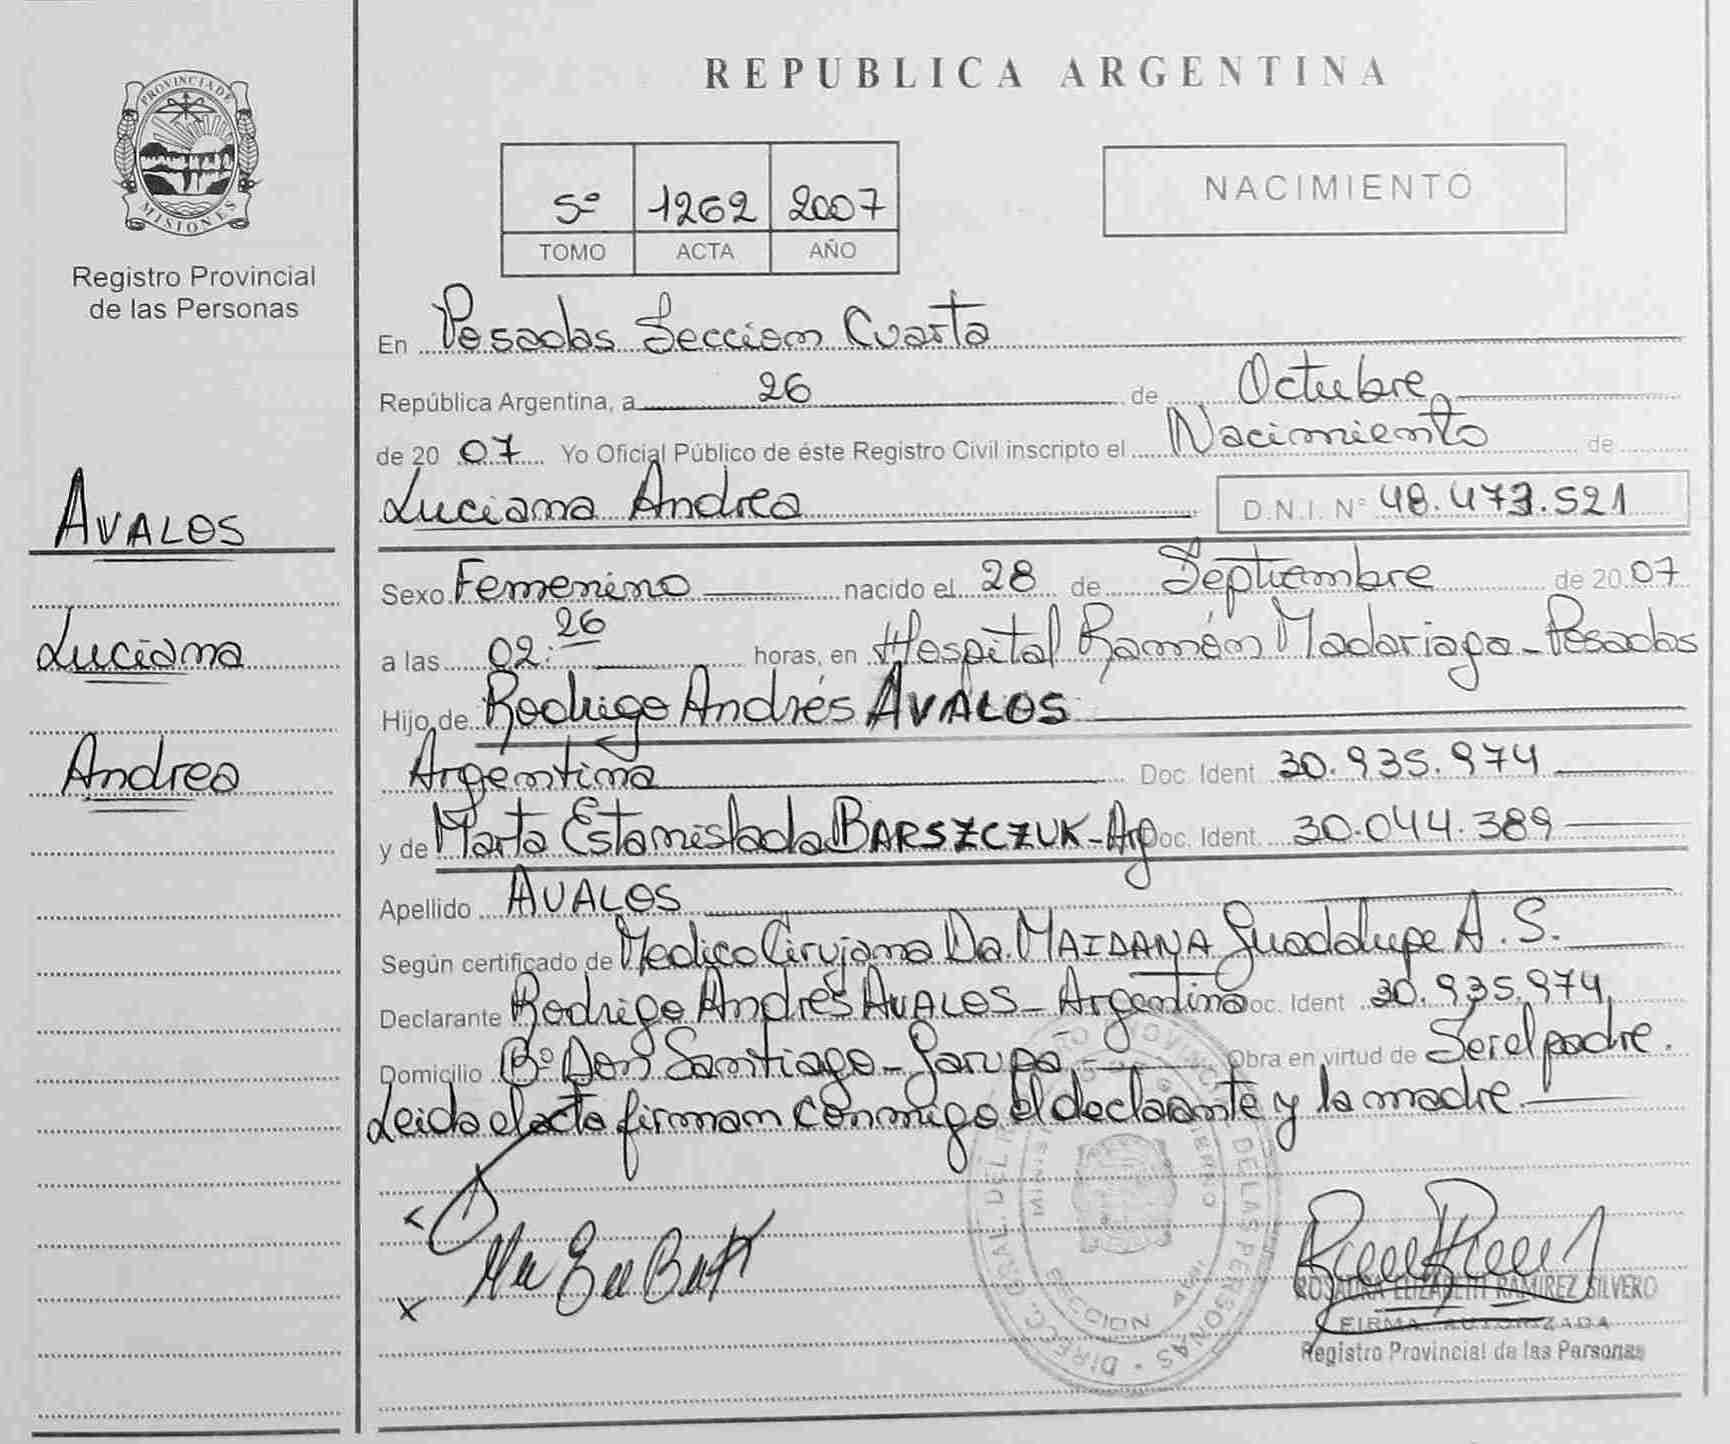 PROVINCIA DE
MISIONES
Registro Provincial
de las Personas
AVALOS
Luciana
Andrea
REPUBLICA ARGENTINA
5º 1262 2007
TOMO ACTA AÑO
NACIMIENTO
En Posadas Seccion Cuarta
República Argentina, a 26 de Octubre
de 2007 Yo Oficial Público de éste Registro Civil inscripto el Nacimiento de
Luciana Andrea D.N.I. Nº 48.473.521
Sexo Femenino nacido el 28 de Septiembre de 2007
a las 02:26 horas, en Hospital Ramón Madariaga - Posadas
Hijo de Rodrigo Andrés AVALOS
Argentina Doc. Ident 30.935.974
y de Marta Estanislada BARSZCZUK - Arg Doc. Ident. 30.044.389
Apellido AVALOS
Según certificado de Medico Cirujana Da. MAIDANA Guadalupe A. S.
Declarante Rodrigo Andrés AVALOS - Argentino Doc. Ident 30.935.974
Domicilio Bº Don Santiago - Garupa - Obra en virtud de Ser el padre.
Leida el acta firman conmigo el declarante y la madre
DIRECC. GRAL. DEL DE LAS PERSONAS
SECCION
ROSAURA ELIZABETH RAMIREZ SILVERO
FIRMA AUTORIZADA
Registro Provincial de las Personas